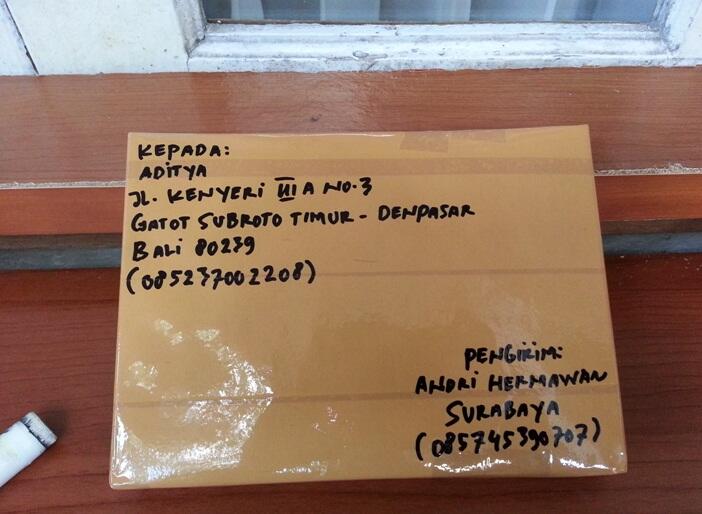 KEPADA:
ADITYA
JL. KENYERI III A NO.3
GATOT SUBROTO TIMUR - DENPASAR
BALI 80239
(085237002208)
PENGIRIM:
ANDRI HERMAWAN
SURABAYA
(085745390707)